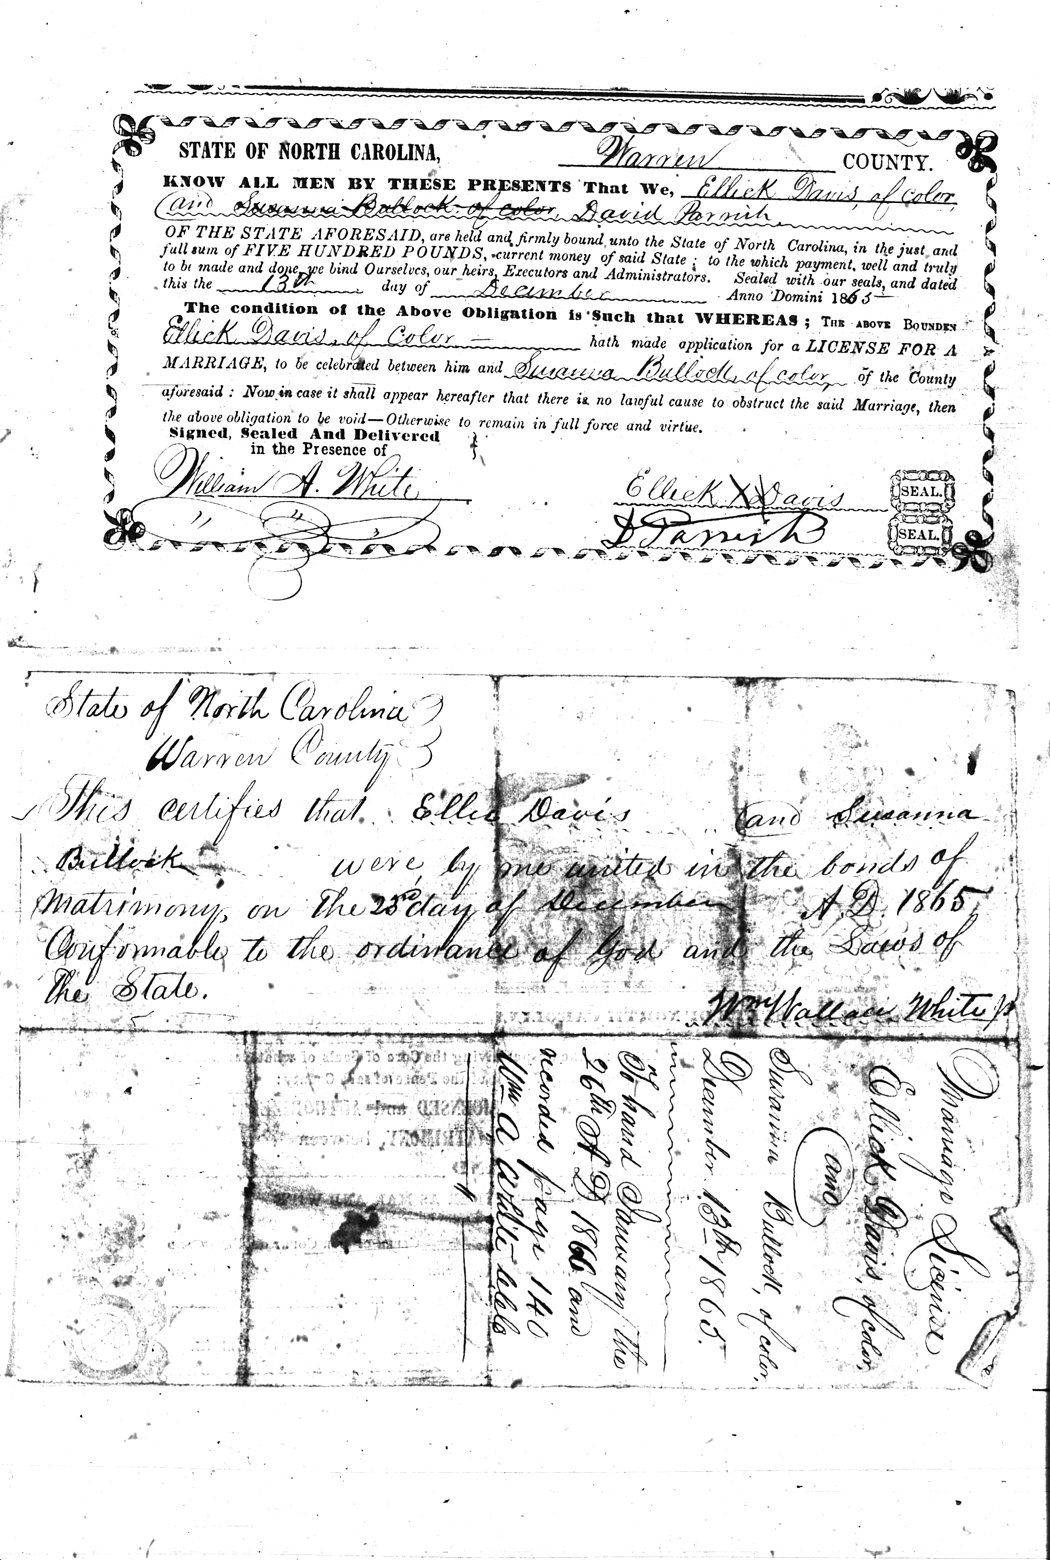 STATE OF NORTH CAROLINA, Warren COUNTY.
KNOW ALL MEN BY THESE PRESENTS That We, Ellick Davis, of color,
(and Susanna Bullock of color, David Parrish,
OF THE STATE AFORESAID, are held and firmly bound unto the State of North Carolina, in the just and
full sum of FIVE HUNDRED POUNDS, current money of said State; to the which payment, well and truly
to be made and done, we bind Ourselves, our heirs, Executors and Administrators. Sealed with our seals, and dated
this the 13th day of December Anno Domini 1865
The condition of the Above Obligation is Such that WHEREAS; THE ABOVE BOUNDEN
Ellick Davis, of Color — hath made application for a LICENSE FOR A
MARRIAGE, to be celebrated between him and Susanna Bullock, of color, of the County
aforesaid: Now in case it shall appear hereafter that there is no lawful cause to obstruct the said Marriage, then
the above obligation to be void—Otherwise to remain in full force and virtue.
Signed, Sealed And Delivered
in the Presence of
William A. White
Ellick X Davis SEAL.
D Parrish SEAL.
State of North Carolina
Warren County
This certifies that Ellic Davis (and Susanna
Bullock were by me united in the bonds of
Matrimony, on the 23rd day of December A D. 1865,
Conformable to the ordinance of God and the Laws of
the State.
Wm Wallace White
Marriage License
Ellick Davis, of color,
(and
Susanna Bullock, of color,
December 13th 1865.
To hand January the
26th A D 1866 and
recorded page 140
Wm A White